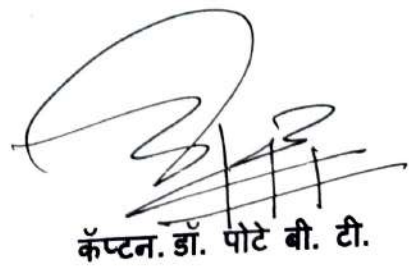 कॅप्टन. डॉ. पोटे बी. टी.